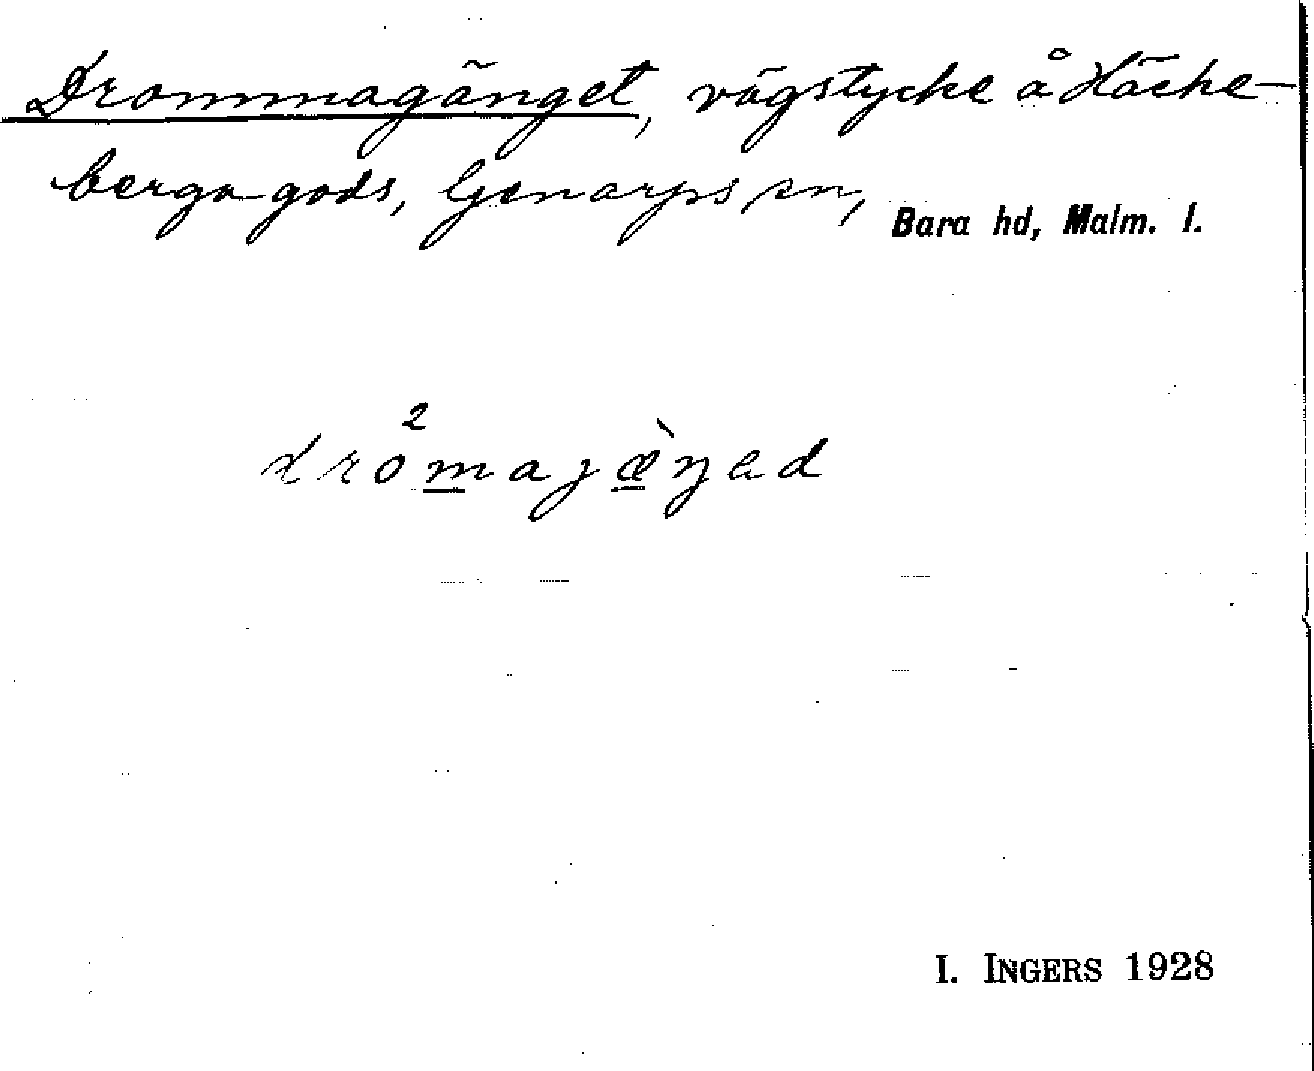 Drommagänget, vägstycke å Häcke-
berga gods, Genarps sn, Bara hd, Malm. l.
dro²majæ̀ŋad
I. INGERS 1928